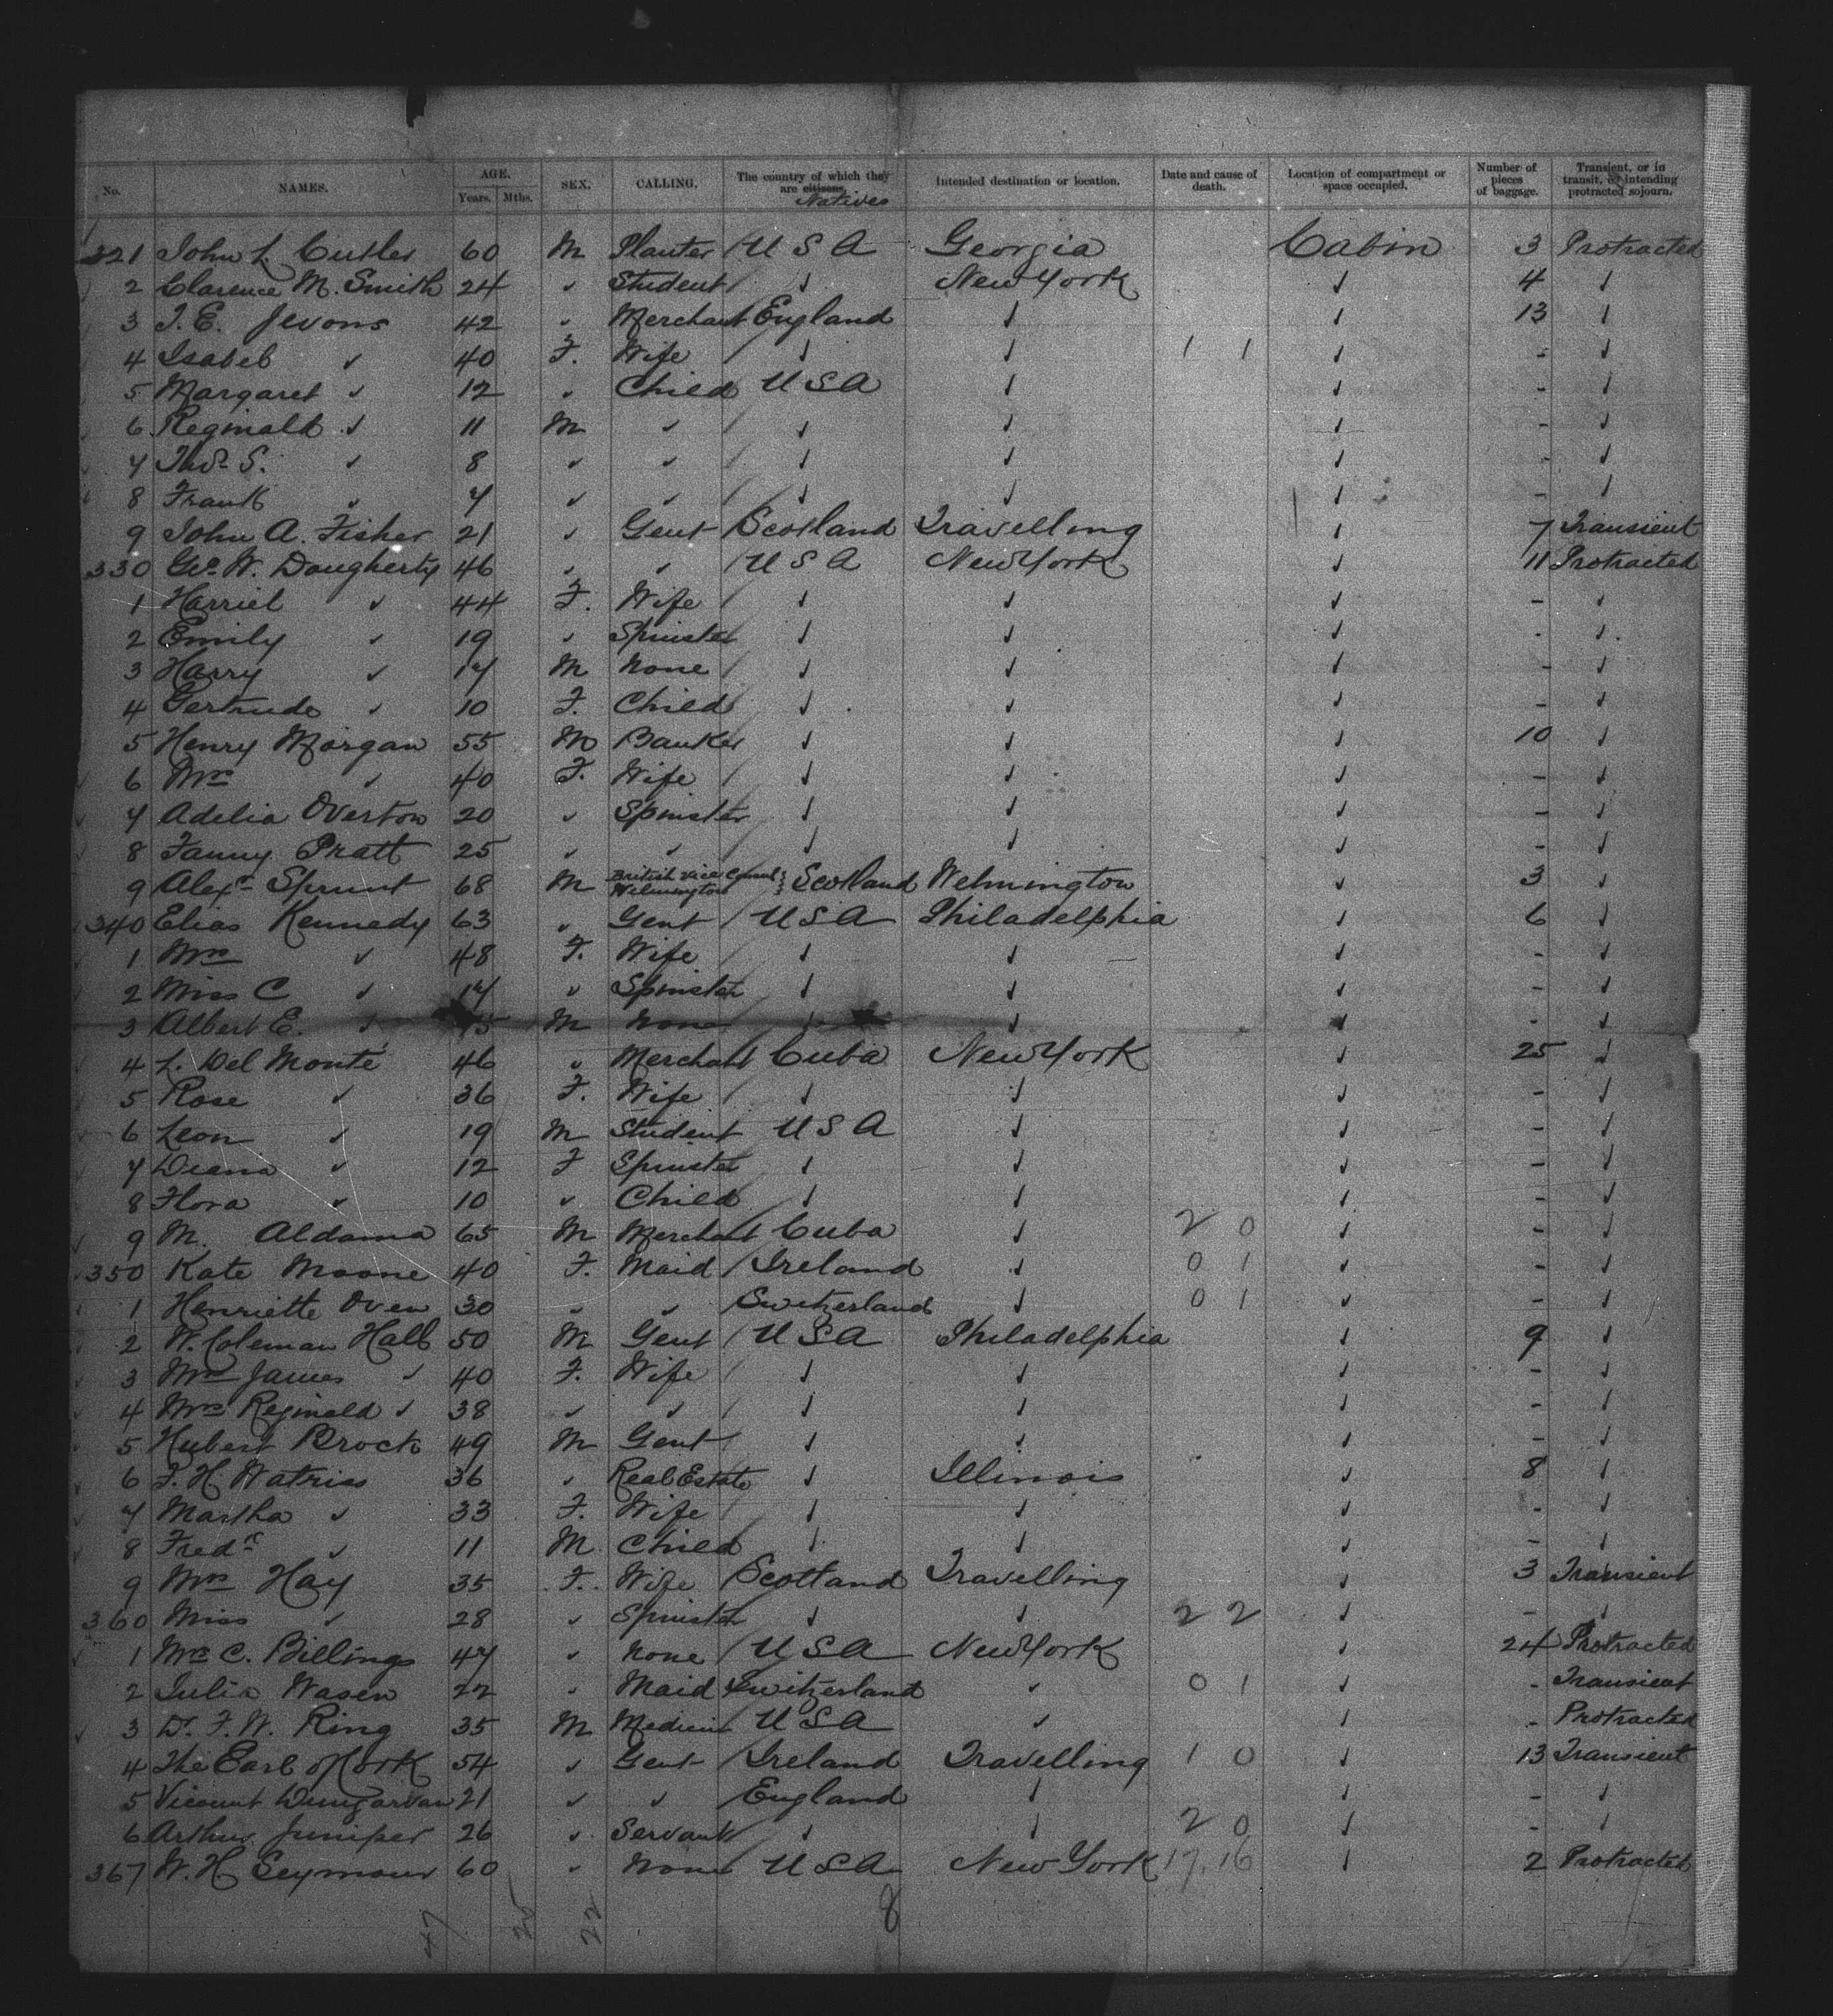 No. NAMES. AGE. Years. Mths. SEX. CALLING. The country of which they are citizens. Natives Intended destination or location. Date and cause of death. Location of compartment or space occupied. Number of pieces of baggage. Transient, or in transit, or intending protracted sojourn.
321 John L. Cutler 60 M Planter U S A Georgia Cabin 3 Protracted
2 Clarence M. Smith 24 ✓ Student ✓ New York ✓ 4 ✓
3 T. E. Jevons 42 ✓ Merchant England ✓ ✓ 13 ✓
4 Isabel ✓ 40 F. Wife ✓ ✓ 1 1 ✓ - ✓
5 Margaret ✓ 12 ✓ Child U S A ✓ ✓ - ✓
6 Reginald ✓ 11 M ✓ ✓ ✓ ✓ - ✓
7 Thos. S. ✓ 8 ✓ ✓ ✓ ✓ ✓ - ✓
8 Frank ✓ 7 ✓ ✓ ✓ ✓ ✓ - ✓
9 John A. Fisher 21 ✓ Gent Scotland Travelling ✓ 7 Transient
330 Geo. W. Dougherty 46 ✓ ✓ U S A New York ✓ 11 Protracted
1 Harriet ✓ 44 F. Wife ✓ ✓ ✓ - ✓
2 Emily ✓ 19 ✓ Spinster ✓ ✓ ✓ - ✓
3 Harry ✓ 17 M None ✓ ✓ ✓ - ✓
4 Gertrude ✓ 10 F. Child ✓ ✓ ✓ - ✓
5 Henry Morgan 55 M Banker ✓ ✓ ✓ 10 ✓
6 Mrs ✓ 40 F. Wife ✓ ✓ ✓ - ✓
7 Adelia Overton 20 ✓ Spinster ✓ ✓ ✓ - ✓
8 Fanny Pratt 25 ✓ ✓ ✓ ✓ ✓ - ✓
9 Alexr. Sprunt 68 M British Vice Consul Wilmington } Scotland Welmington ✓ 3 ✓
340 Elias Kennedy 63 ✓ Gent U S A Philadelphia ✓ 6 ✓
1 Mrs ✓ 48 F. Wife ✓ ✓ ✓ - ✓
2 Miss C ✓ 17 ✓ Spinster ✓ ✓ ✓ - ✓
3 Albert E. ✓ 15 M None ✓ ✓ ✓ - ✓
4 L. Del Monte 46 ✓ Merchant Cuba New York ✓ 25 ✓
5 Rose ✓ 36 F. Wife ✓ ✓ ✓ - ✓
6 Leon ✓ 19 M Student U S A ✓ ✓ - ✓
7 Diana ✓ 12 F Spinster ✓ ✓ ✓ - ✓
8 Flora ✓ 10 ✓ Child ✓ ✓ ✓ - ✓
9 M. Aldama 65 M Merchant Cuba ✓ 2 0 ✓ - ✓
350 Kate Moone 40 F. Maid Ireland ✓ 0 1 ✓ - ✓
1 Henriette Oven 30 ✓ ✓ Switzerland ✓ 0 1 ✓ - ✓
2 W. Coleman Hall 50 M Gent U S A Philadelphia ✓ 9 ✓
3 Mrs James ✓ 40 F. Wife ✓ ✓ ✓ - ✓
4 Mrs Reginald ✓ 38 ✓ ✓ ✓ ✓ ✓ - ✓
5 Hubert Brock 49 M Gent ✓ ✓ ✓ - ✓
6 F. H. Watriss 36 ✓ Real Estate ✓ Illinois ✓ 8 ✓
7 Martha ✓ 33 F. Wife ✓ ✓ ✓ - ✓
8 Fredk ✓ 11 M Child ✓ ✓ ✓ - ✓
9 Mrs Hay 35 F. Wife Scotland Travelling ✓ 3 Transient
360 Miss ✓ 28 ✓ Spinster ✓ ✓ 2 2 ✓ - ✓
1 Mrs C. Billings 47 ✓ None U S A New York ✓ 24 Protracted
2 Julia Wasen 22 ✓ Maid Switzerland ✓ 0 1 ✓ - Transient
3 Dr. F. W. Ring 35 M Medicine U S A ✓ ✓ - Protracted
4 The Earl of Cork 54 ✓ Gent Ireland Travelling 1 0 ✓ 13 Transient
5 Vicount Dungarvan 21 ✓ ✓ England ✓ ✓ - ✓
6 Arthur Juniper 26 ✓ Servant ✓ ✓ 2 0 ✓ - ✓
367 W. H. Seymour 60 ✓ None U S A New York 17.16 ✓ 2 Protracted
47 25 22 8